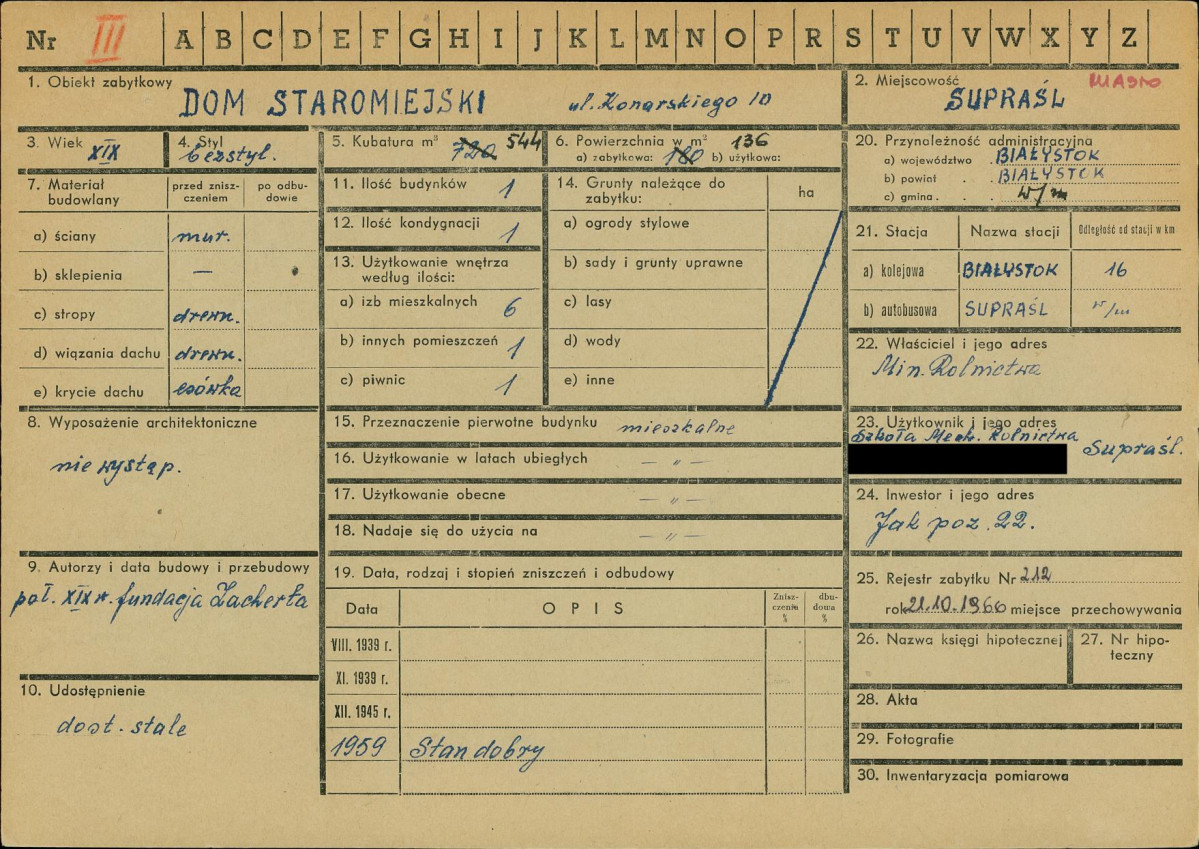 Nr III A B C D E F G H I J K L M N O P R S T U V W X Y Z
1. Obiekt zabytkowy
DOM STAROMIEJSKI ul. Konarskiego 10
2. Miejscowość MIASTO
SUPRAŚL
3. Wiek XIX
4. Styl bezstyl.
5. Kubatura m³ 720 544
6. Powierzchnia w m² 136
a) zabytkowa: 180 b) użytkowa:
20. Przynoleżność administracyjna
a) województwo BIAŁYSTOK
b) powiat BIAŁYSTOK
c) gmina w/m
7. Materiał budowlany
przed znisz-
czeniem
po odbu-
dowie
a) ściany mur.
b) sklepienia —
c) stropy drewn.
d) wiązania dachu drewn.
e) krycie dachu esówka
11. Ilość budynków 1
12. Ilość kondygnacji 1
13. Użytkowanie wnętrza
według ilości:
a) izb mieszkalnych 6
b) innych pomieszczeń 1
c) piwnic 1
14. Grunty należące do
zabytku:
ha
a) ogrody stylowe
b) sady i grunty uprawne
c) lasy
d) wody
e) inne
21. Stacja Nazwa stacji Odległość od stacji w km
a) kolejowa BIAŁYSTOK 16
b) autobusowa SUPRAŚL w/m
22. Właściciel i jego adres
Min. Rolnictwa
8. Wyposażenie architektoniczne
nie występ.
15. Przeznaczenie pierwotne budynku mieszkalne
16. Użytkowanie w latach ubiegłych — " —
17. Użytkowanie obecne — " —
18. Nadaje się do użycia na — " —
23. Użytkownik i jego adres
Szkoła Mech. Rolnictwa
Supraśl.
24. Inwestor i jego adres
Jak poz. 22.
9. Autorzy i data budowy i przebudowy
poł. XIX w. fundacja Zacherta
19. Data, rodzaj i stopień zniszczeń i odbudowy
Data OPIS
Znisz-
czenia
%
dbu-
dowa
%
VIII. 1939 r.
XI. 1939 r.
XII. 1945 r.
1959 Stan dobry
25. Rejestr zabytku Nr 212
rok 21.10.1966 miejsce przechowywania
26. Nazwa księgi hipotecznej
27. Nr hipo-
teczny
10. Udostępnienie
dost. stale
28. Akta
29. Fotografie
30. Inwentaryzacja pomiarowa